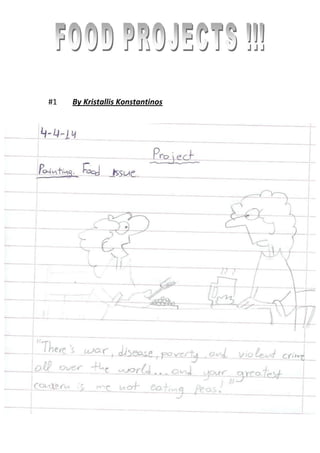 FOOD PROJECTS !!!
#1 By Kristallis Konstantinos
4-4-14
Project
Painting: Food issue
"There's war, disease, poverty, and violent crime
all over the world... and your greatest
concern is me not eating peas!"